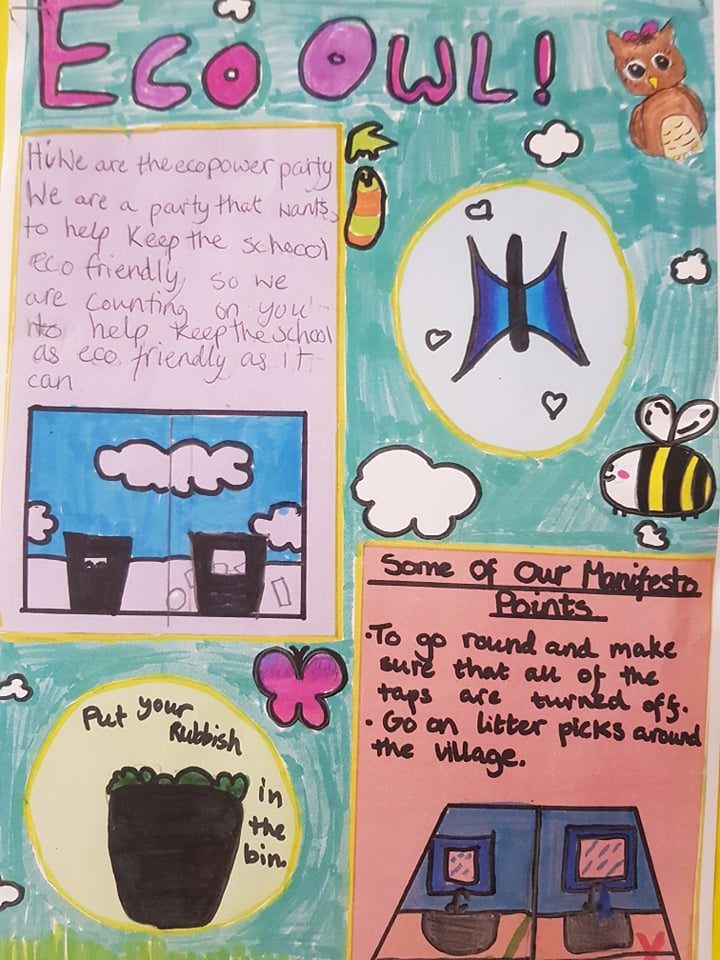 Eco Owl!
Hi We are the ecopower party
We are a party that wants
to help Keep the schoool
eco friendly, so we
are counting on you
to help keep the school
as eco friendly as it
can
Some of Our Manifesto
Points
·To go round and make
sure that all of the
taps are turned off.
· Go on litter picks around
the village.
Put your
Rubbish
in
the
bin.